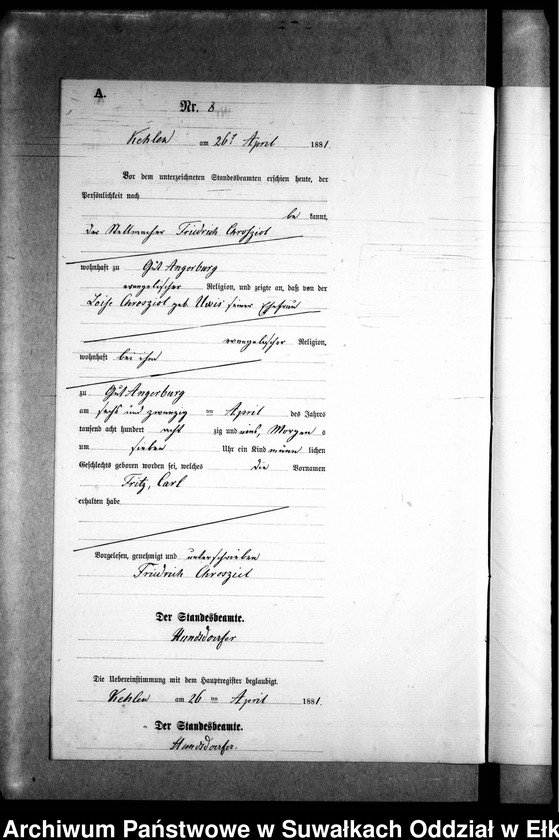 A.
Nr. 8
Kehlen am 26t April 1881.
Vor dem unterzeichneten Standesbeamten erschien heute, der
Persönlichkeit nach
be kannt,
der Stellmacher Friedrich Chrosziel
wohnhaft zu Gut Angerburg
evangelischer Religion, und zeigte an, daß von der
Chrosziel geb. seiner Ehefrau
evangelischer Religion,
wohnhaft bei ihm
zu Gut Angerburg
am sechs und zwanzig ten April des Jahres
tausend acht hundert acht zig und eins, Morgen s
um sieben Uhr ein Kind männ lichen
Geschlechts geboren worden sei, welches die Vornamen
Fritz, Carl
erhalten habe
Vorgelesen, genehmigt und unterschrieben
Friedrich Chrosziel
Der Standesbeamte.
Hundsdoerfer
Die Uebereinstimmung mit dem Hauptregister beglaubigt.
Kehlen am 26 ten April 1881.
Der Standesbeamte.
Hundsdoerfer.
Archiwum Państwowe w Suwałkach Oddział w Ełk